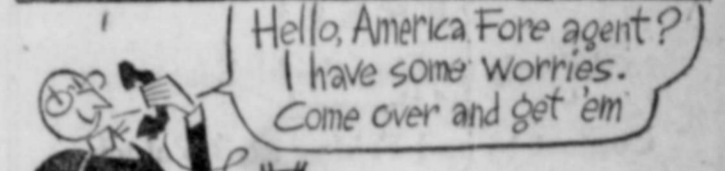 Hello, America Fore agent?
I have some worries.
Come over and get 'em